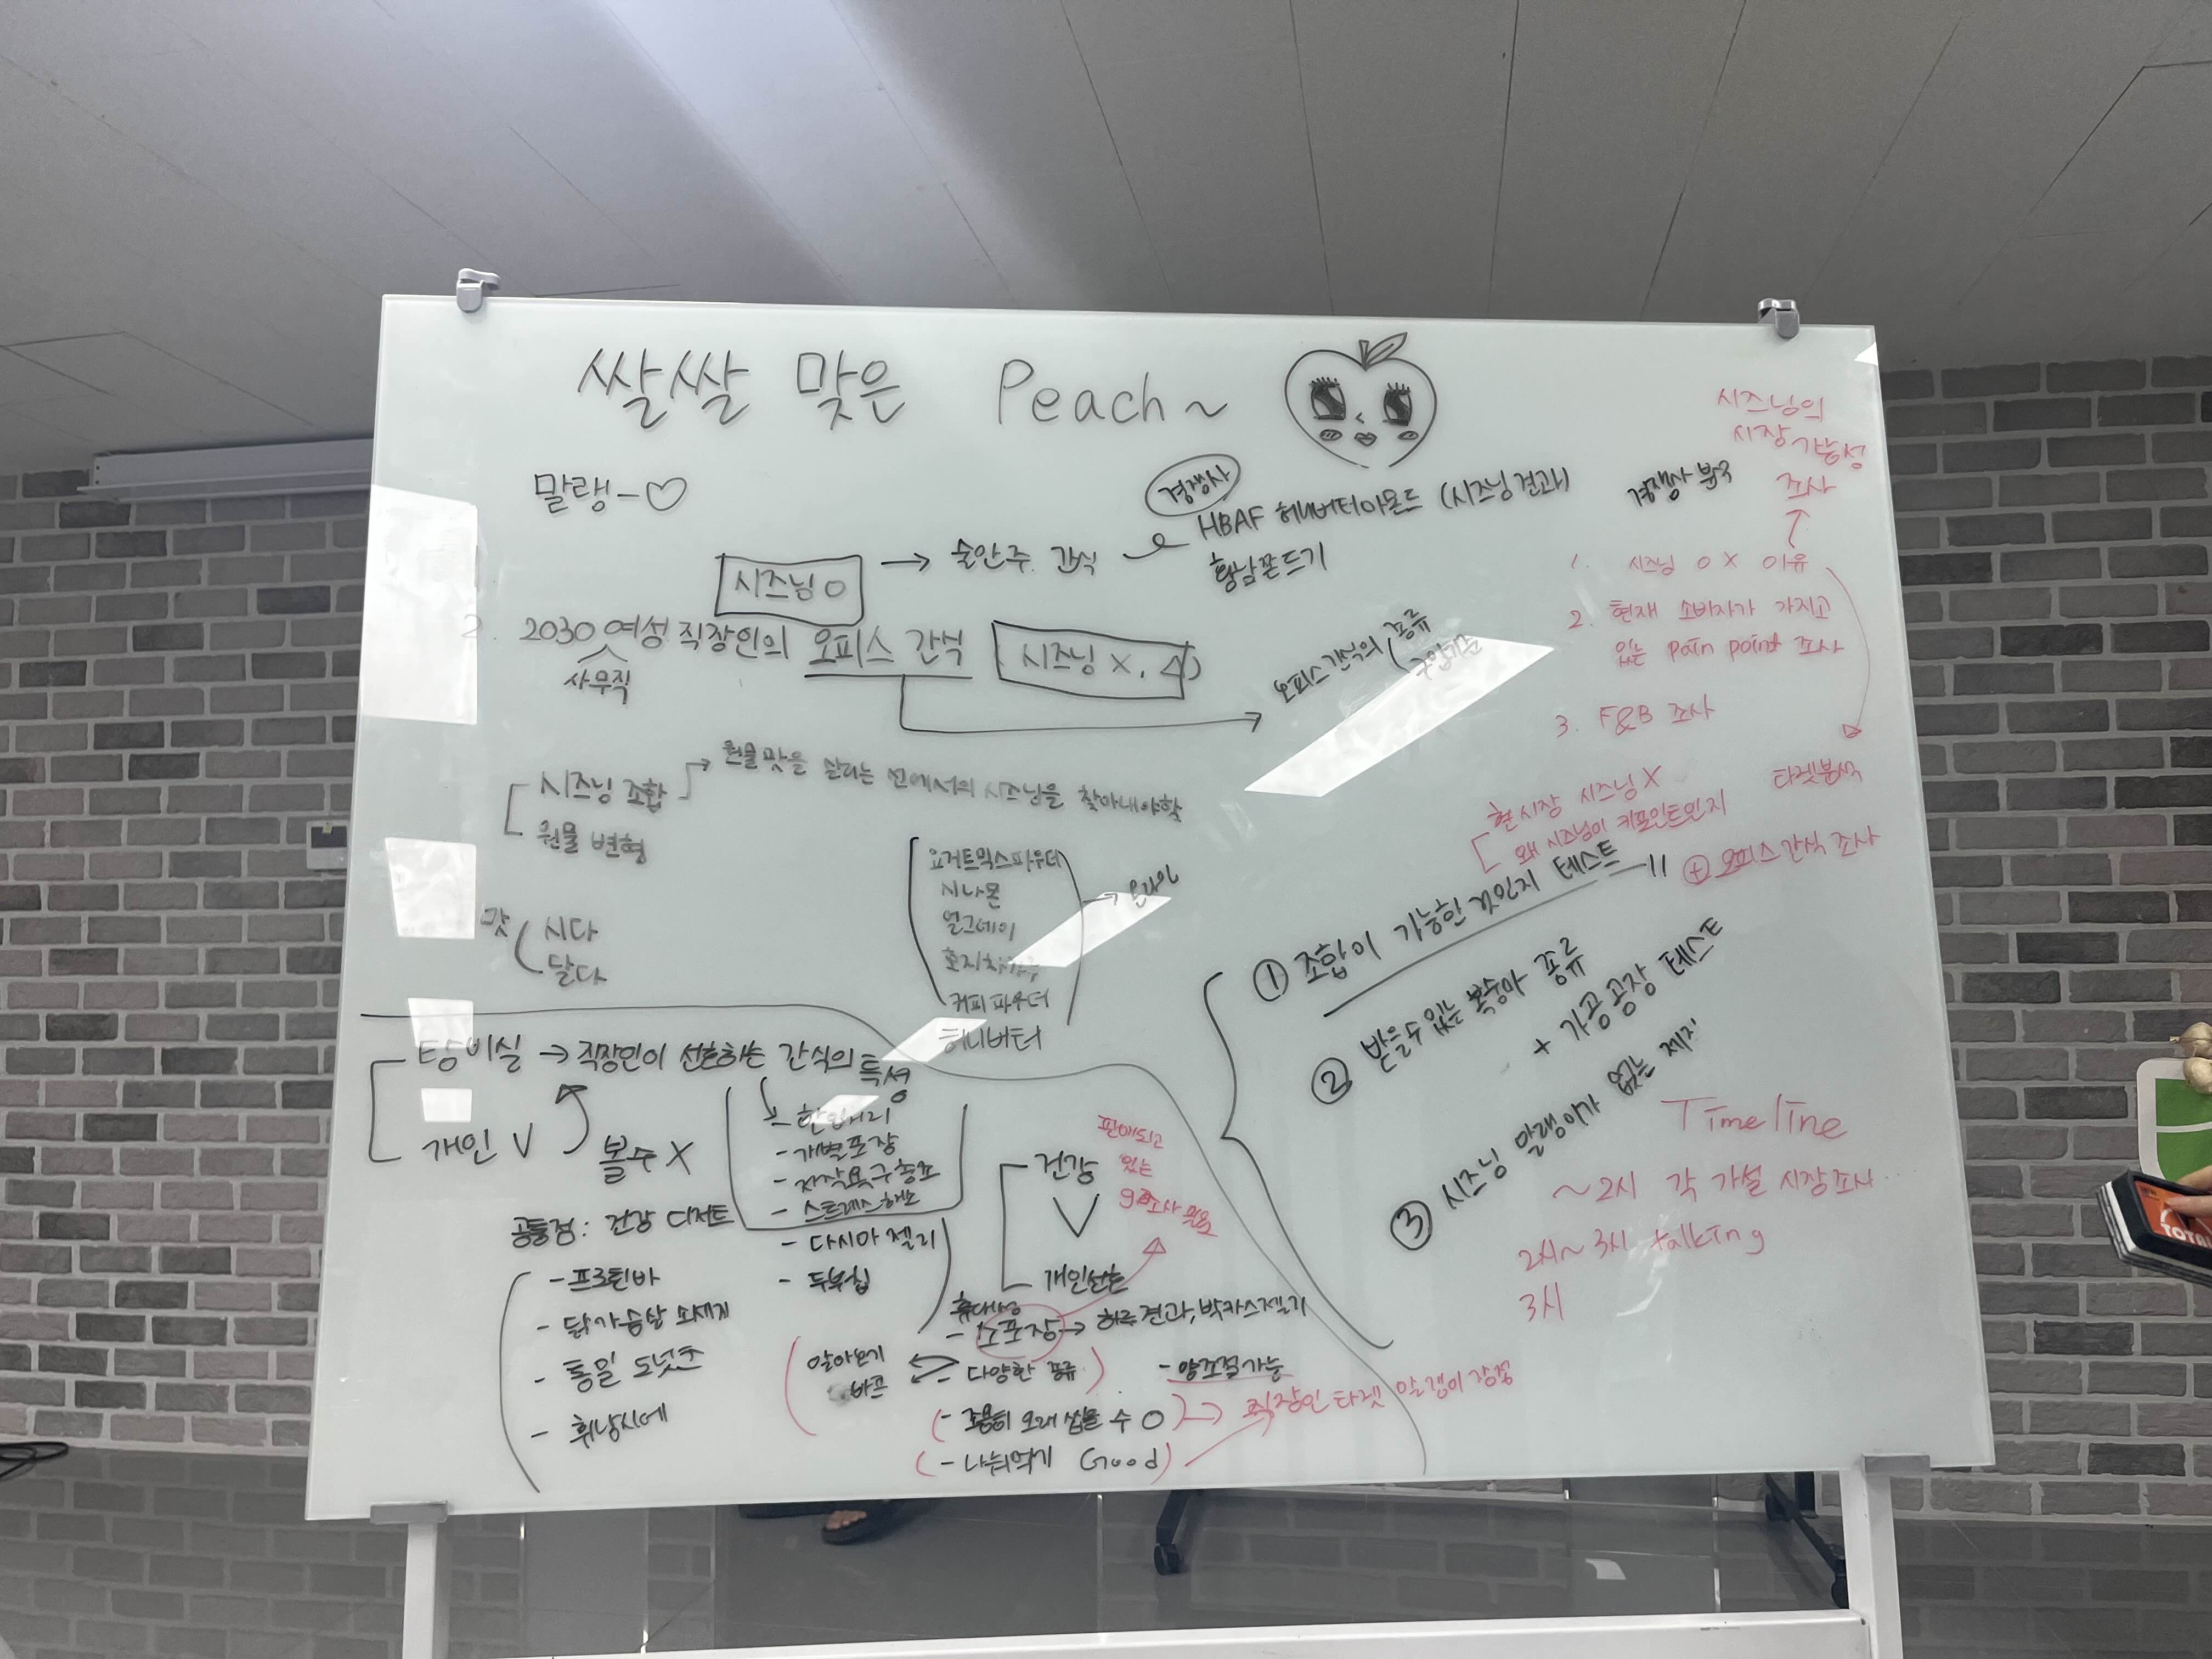 쌀쌀 맞은 Peach~
말랭-♡
시즈닝 O → 술안주 간식
경쟁사
HBAF 허니버터아몬드 (시즈닝 견과)
황남쫀드기
2. 2030 여성 직장인의 오피스 간식
사무직
시즈닝 X, △
오피스 간식의 종류
시즈닝 조합 → 원물 맛을 살리는 선에서의 시즈닝을 찾아내야함
원물 변형
맛
시다
달다
요거트믹스파우더
시나몬
얼그레이
커피 파우더
허니버터
→ 온라인
탕비실 → 직장인이 선호하는 간식의 특성
개인 V
볼수 X
- 한입거리
- 개별포장
- 저작욕구 충족
- 스트레스 해소
- 다시마 젤리
- 두부칩
공통점: 건강 디저트
- 프로틴바
- 닭가슴살 소세지
- 통밀 도넛츠
- 휘낭시에
건강
V
개인선호
휴대성
- 소포장 → 하루견과, 박카스젤리
- 다양한 종류
알아보기
바쁨
- 양조절가능
- 조용히 오래 씹을 수 O
- 나눠먹기 Good
→ 직장인 타겟 말랭이 장점
판매되고
있는
시즈닝의
시장 가능성
조사
경쟁사 분석
1. 시즈닝 O X 이유
2. 현재 소비자가 가지고
있는 pain point 조사
3. F&B 조사
타겟분석
현 시장 시즈닝 X
왜 시즈닝이 키포인트인지
+ 오피스 간식 조사
① 조합이 가능한 것인지 테스트
② 받을 수 있는 복숭아 종류
+ 가공공장 테스트
③ 시즈닝 말랭이가 없는 제지
Timeline
~2시 각 가설 시장조사
2시~3시 talking
3시
TOTAL